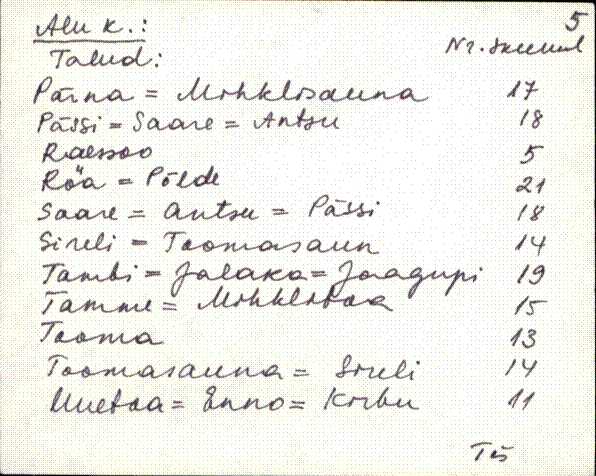 5
Alu k.:
Nr. skeemil
Talud:
Pärna = Mihklisauna 17
Pässi = Saare = Antsu 18
Raessoo 5
Rõa = Põlde 21
Saare = Antsu = Pässi 18
Sireli = Toomasaun 14
Tambi = Jalaka = Jaagupi 19
Tamme = Mihklitoa 15
Tooma 13
Toomasauna = Sireli 14
Uuetoa = Enno = Kirbu 11